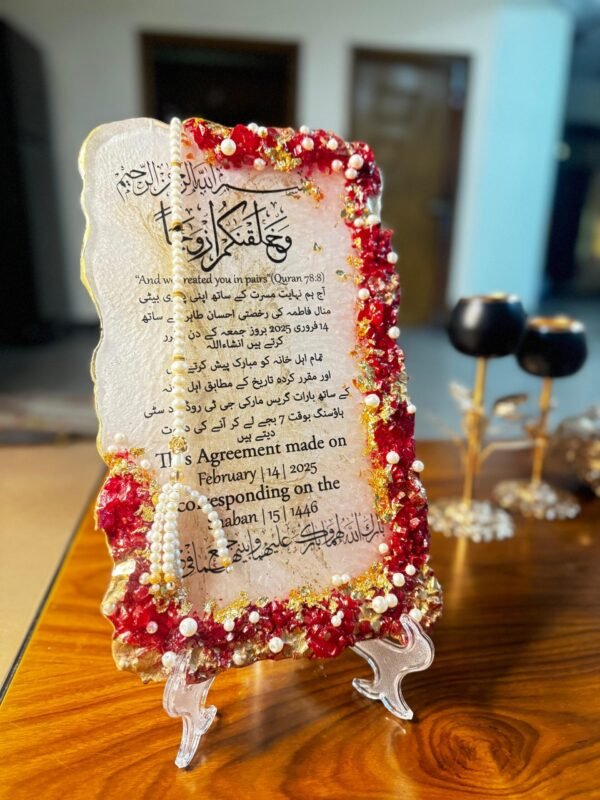 بسم الله الرحمن الرحيم
وَخَلَقْنَٰكُمْ أَزْوَٰجًا
"And we created you in pairs"(Quran 78:8)
آج ہم نہایت مسرت کے ساتھ اپنی بیٹی
منال فاطمہ کی رخصتی احسان طاہر کے ساتھ
14 فروری 2025 بروز جمعہ کے دن
کرتے ہیں انشاءاللہ
تمام اہل خانہ کو مبارک پیش کرتے
اور مقرر کردہ تاریخ کے مطابق اہل
کے ساتھ بارات گریس مارکی جی ٹی روڈ سٹی
ہاؤسنگ بوقت 7 بجے لے کر آنے کی
دیتے ہیں
This Agreement made on
February |14| 2025
corresponding on the
Shaban |15| 1446
بارك الله لهما وبارك عليهما وجمع بينهما في